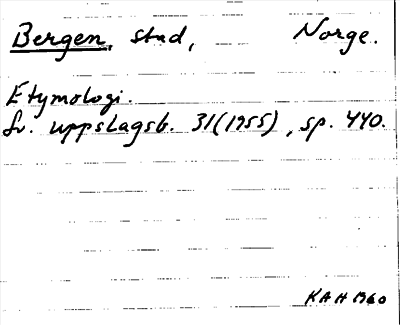 Bergen, stad, Norge.
Etymologi.
Sv. uppslagsb. 31(1955), sp. 440.
KAH 1960